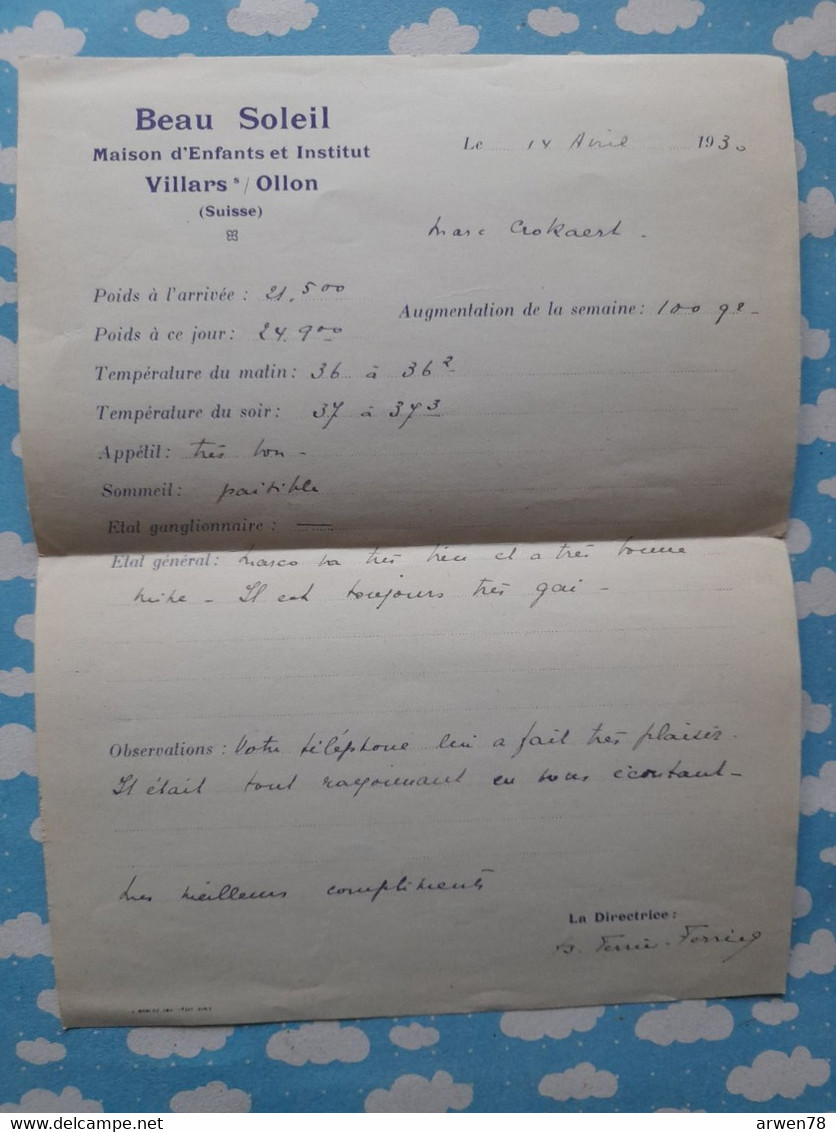 Beau Soleil
Maison d'Enfants et Institut
Villars s/ Ollon
(Suisse)
Le 14 Avril 1930
Marc Crokaert -
Poids à l'arrivée : 21.500
Augmentation de la semaine : 100 gr -
Poids à ce jour : 24.900
Température du matin : 36 à 36 2
Température du soir : 37 à 37 3
Appétit : très bon -
Sommeil : paisible
Etat ganglionnaire : —
Etat général : Marco va très bien et a très bonne
mine - Il est toujours très gai -
Observations : Votre téléphone lui a fait très plaisir.
Il était tout rayonnant en vous écoutant -
Mes meilleurs compliments
La Directrice :
Ferrier
Delcampe.net
arwen78